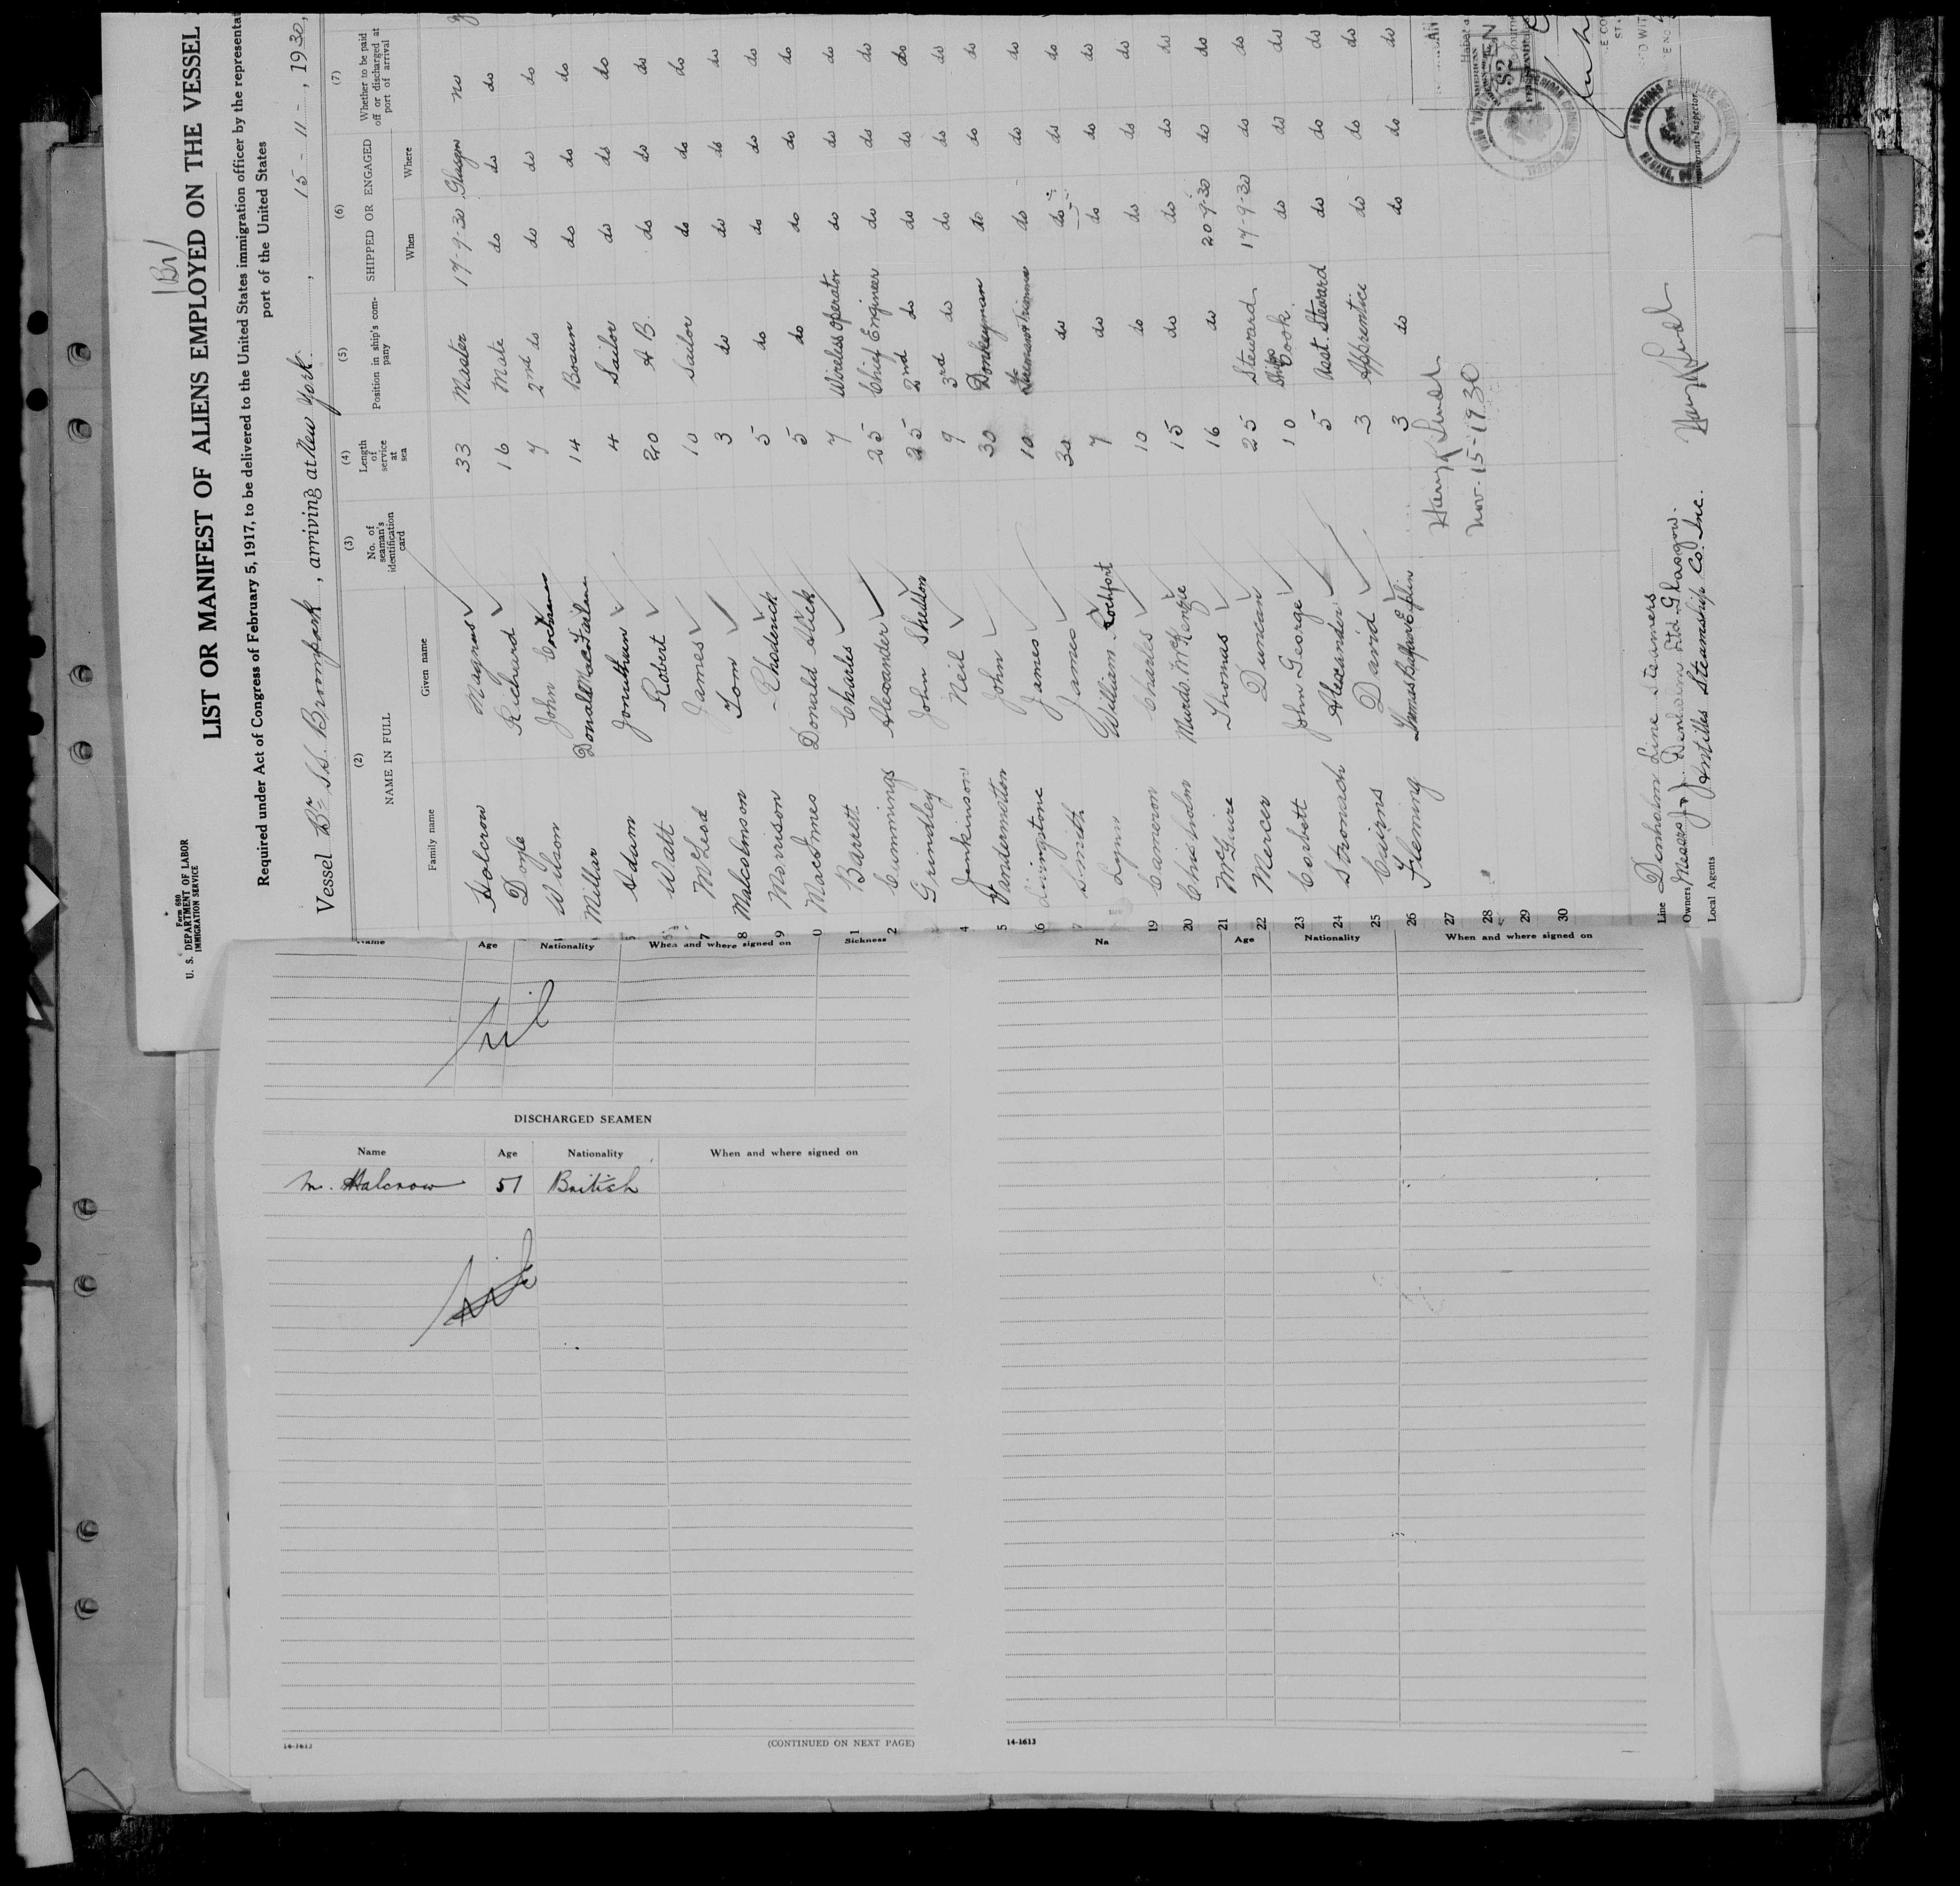 Form 680
U. S. DEPARTMENT OF LABOR
IMMIGRATION SERVICE
LIST OR MANIFEST OF ALIENS EMPLOYED ON THE VESSEL
Required under Act of Congress of February 5, 1917, to be delivered to the United States immigration officer by the representat
port of the United States
Vessel Br SS. Bromfank, arriving at New York, 15 - 11 -, 1930,
(2) NAME IN FULL (3) No. of seaman's identification card (4) Length of service at sea (5) Position in ship's company (6) SHIPPED OR ENGAGED (7) Whether to be paid off or discharged at port of arrival
Family name Given name When Where
Holcrow Magnus 33 Master 17-9-30 Glasgow no
Doyle Richard 16 Mate do do do
Wilson John Cochrane 7 2nd do do do do
Millar Donald MacFarlane 14 Bosun do do do
Adam Jonathan 4 Sailor do do do
Watt Robert 20 A B. do do do
7 McLeod James 10 Sailor do do do
8 Malcolmson Tom 3 do do do do
9 Morrison Rhoderick 5 do do do do
0 MacInnes Donald Alick 5 do do do do
1 Barrett Charles 7 Wireless Operator do do do
2 Cummings Alexander 25 Chief Engineer do do do
Grindley John Sheddon 25 2nd do do do do
4 Jenkinson Neil 9 3rd do do do do
5 Vandermatton John 30 Donkeyman do do do
6 Livingstone James 10 Fireman & Trimmer do do do
7 Smith James 30 do do do do
Lynn William Rochfort 7 do do do do
19 Cameron Charles 10 do do do do
20 Chisholm Murdo McKenzie 15 do do do do
21 McGuire Thomas 16 do 20-9-30 do do
22 Mercer Duncan 25 Steward 17-9-30 do do
23 Corbett John George 10 Ships Cook do do do
24 Stronach Alexander 5 Asst. Steward do do do
25 Cairns David 3 Apprentice do do do
26 Fleming Thomas Balfour 3 do do do do
27
28
29
30
Nov-15-1930
Line Denholm Line Steamers
Owners Messrs J & J. Denholm Ltd Glasgow.
Local Agents Antilles Steamship Co. Inc.
Immigrant Inspector
Name Age Nationality When and where signed on Sickness
Nil
DISCHARGED SEAMEN
Name Age Nationality When and where signed on
M. Halcrow 51 British
14-1613
(CONTINUED ON NEXT PAGE)
Na Age Nationality When and where signed on
14-1613